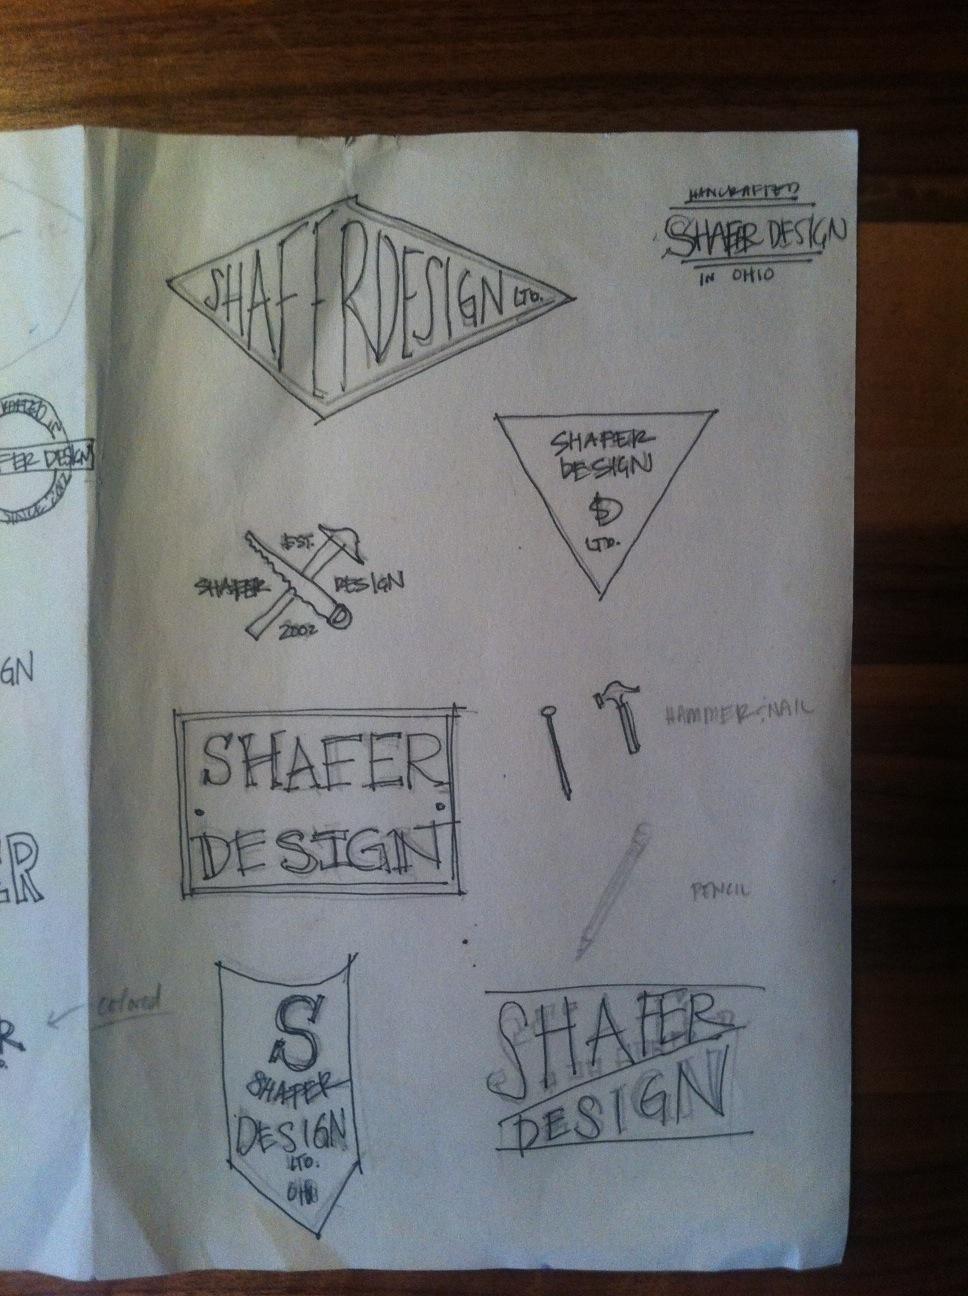 HANCRAFTED
SHAFER DESIGN
IN OHIO
SHAFERDESIGN LTD.
SHAFER
DESIGN
LTD.
FER DESIGN
SINCE 2002
EST.
SHAFER DESIGN
2002
GN
HAMMER & NAIL
SHAFER
DESIGN
ER
PENCIL
colored
R
S
SHAFER
DESIGN
LTD.
OHIO
SHAFER
DESIGN